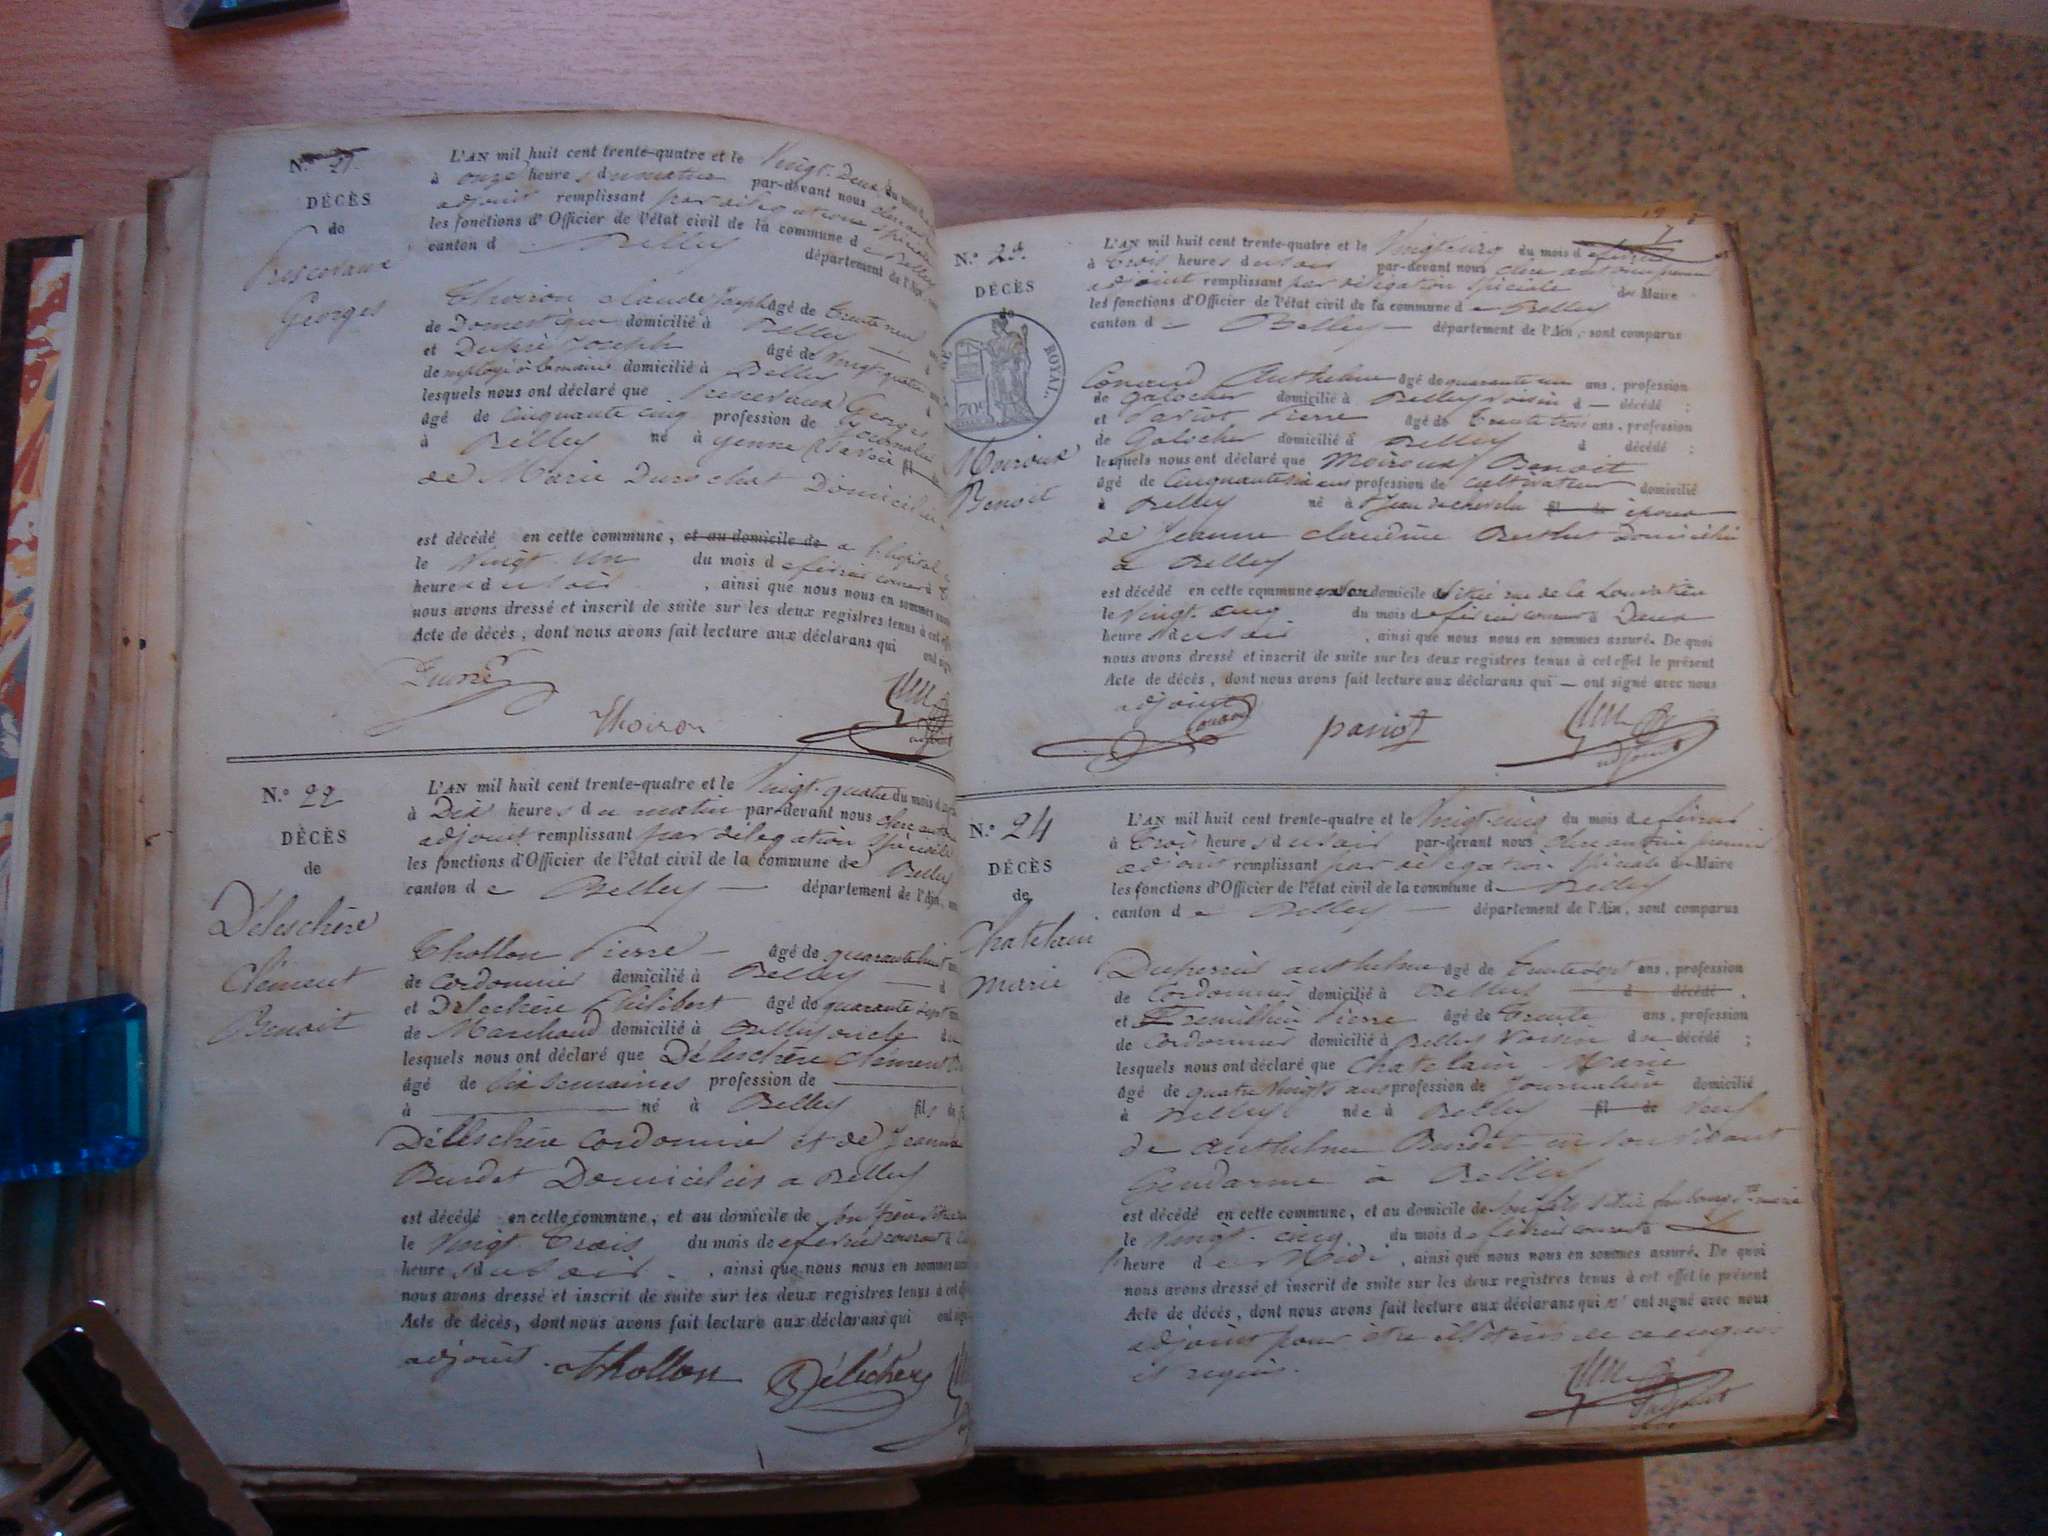 N.º 21.
DÉCÈS
de
Georges
L'AN mil huit cent trente-quatre et le Vingt-Deux du mois d
à onze heures du matin par-devant nous
adjoint remplissant par délégation spéciale
les fonctions d'Officier de l'état civil de la commune de Belley
canton d Belley département de l'Ain,
Thoiron Claude Joseph âgé de trente neuf
de Domestique domicilié à Belley
et Dupré Joseph âgé de Vingt quatre
de employé à la mairie domicilié à Belley
lesquels nous ont déclaré que Georges
âgé de Cinquante cinq profession de Journalier
à Belley né à Yenne
de Marie Domicilié
est décédé en cette commune, et au domicile de a l'hopital
le Vingt-Un du mois de février courant à
heures du soir, ainsi que nous nous en sommes
nous avons dressé et inscrit de suite sur les deux registres tenus à cet
Acte de décès, dont nous avons fait lecture aux déclarans qui ont
Dupré
Thoiron
adjoint
N.º 22
DÉCÈS
de
Déleschère
Clément
Benoit
L'AN mil huit cent trente-quatre et le Vingt-quatre du mois d
à Dix heures du matin par-devant nous Clerc
adjoint remplissant par délégation spéciale
les fonctions d'Officier de l'état civil de la commune de Belley
canton de Belley — département de l'Ain,
Thollon Pierre — âgé de quarante huit
de Cordonnier domicilié à Belley — d
et Deleschère Philibert âgé de quarante sept
de Marchand domicilié à Belley oncle
lesquels nous ont déclaré que Déleschère Clément
âgé de Six Semaines profession de —
à — né à Belley fils de
Déleschère Cordonnier et de Jeanne
Burdet Domiciliés a Belley
est décédé en cette commune, et au domicile de son père
le Vingt-Trois du mois de février courant à
heures du soir, ainsi que nous nous en sommes
nous avons dressé et inscrit de suite sur les deux registres tenus à cet
Acte de décès, dont nous avons fait lecture aux déclarans qui ont
adjoint. Thollon Déléchère
N.º 23.
DÉCÈS
de
ROYAL.
70c
Moiroux
Benoit
L'AN mil huit cent trente-quatre et le Vingt cinq du mois de février
à trois heures du soir par-devant nous Clerc antoine premier
adjoint remplissant par délégation spéciale du Maire
les fonctions d'Officier de l'état civil de la commune de Belley
canton de Belley — département de l'Ain, sont comparus
Conand Anthelme âgé de quarante un ans, profession
de Galocher domicilié à Belley Voisin d — décédé ;
et Pariot Pierre âgé de trente trois ans, profession
de Galocher domicilié à Belley d décédé ;
lesquels nous ont déclaré que Moiroux Benoit
âgé de Cinquante six ans profession de cultivateur domicilié
à Belley né à fil de époux
de Jeanne Claudine Domicilié
à Belley
est décédé en cette commune en son domicile situé rue de la
le Vingt-cinq du mois de février courant à Deux
heures du soir, ainsi que nous nous en sommes assuré. De quoi
nous avons dressé et inscrit de suite sur les deux registres tenus à cet effet le présent
Acte de décès, dont nous avons fait lecture aux déclarans qui — ont signé avec nous
adjoint
Conand pariot
adjoint
N.º 24
DÉCÈS
de
Chatelain
Marie
L'AN mil huit cent trente-quatre et le Vingt-cinq du mois de février
à trois heures du soir par-devant nous Clerc antoine premier
adjoint remplissant par délégation spéciale du Maire
les fonctions d'Officier de l'état civil de la commune de Belley
canton de Belley — département de l'Ain, sont comparus
anthelme âgé de trente sept ans, profession
de Cordonnier domicilié à Belley d décédé,
et Pierre âgé de trente ans, profession
de Cordonnier domicilié à Belley Voisin de décédé ;
lesquels nous ont déclaré que Chatelain Marie
âgé de quatre vingts ans profession de Journalière domicilié
à Belley née à Belley fil de veuf
de anthelme Burdet en son vivant
Gendarme à Belley
est décédé en cette commune, et au domicile de son fils situé faubourg
le Vingt-cinq du mois de février courant à
heure de Midi, ainsi que nous nous en sommes assuré. De quoi
nous avons dressé et inscrit de suite sur les deux registres tenus à cet effet le présent
Acte de décès, dont nous avons fait lecture aux déclarans qui n'ont signé avec nous
adjoint pour être illétérés de ce enquis
et requis.